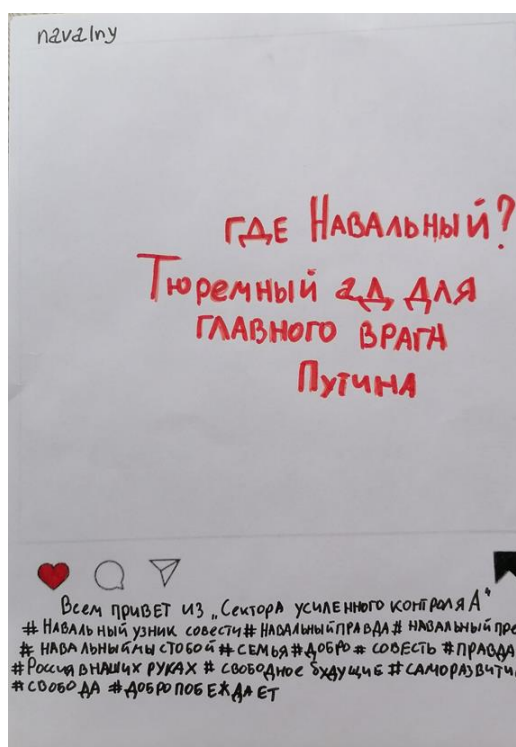 navalny
где Навальный?
Тюремный ад для
главного врага
Путина
Всем привет из „Сектора усиленного контроля А"
# Навальный узник совести # Навальныйправда # навальный пре
# навальныймы стобой # семья # добро # совесть # правда
# Россия внаших руках # свободное будущие # саморазвити
# свобода # добропобеждает